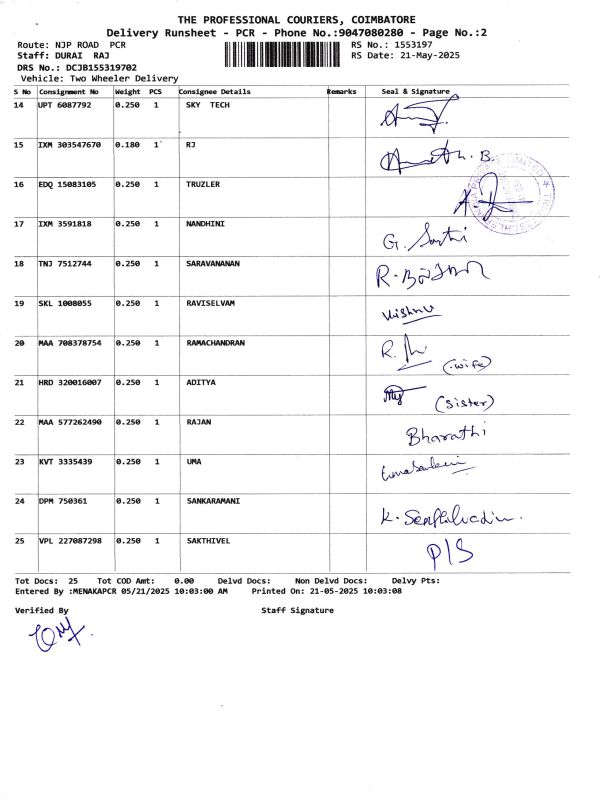 THE PROFESSIONAL COURIERS, COIMBATORE
Delivery Runsheet - PCR - Phone No.:9047080280 - Page No.:2
Route: NJP ROAD PCR RS No.: 1553197
Staff: DURAI RAJ RS Date: 21-May-2025
DRS No.: DCJB155319702
Vehicle: Two Wheeler Delivery
S No Consignment No Weight PCS Consignee Details Remarks Seal & Signature
14 UPT 6087792 0.250 1 SKY TECH
15 IXM 303547670 0.180 1 RJ
16 EDQ 15083105 0.250 1 TRUZLER
17 IXM 3591818 0.250 1 NANDHINI
18 TNJ 7512744 0.250 1 SARAVANANAN
19 SKL 1008055 0.250 1 RAVISELVAM
20 MAA 708378754 0.250 1 RAMACHANDRAN (wife)
21 HRD 320016007 0.250 1 ADITYA (Sister)
22 MAA 577262490 0.250 1 RAJAN Bharathi
23 KVT 3335439 0.250 1 UMA
24 DPM 750361 0.250 1 SANKARAMANI
25 VPL 227087298 0.250 1 SAKTHIVEL P/S
Tot Docs: 25 Tot COD Amt: 0.00 Delvd Docs: Non Delvd Docs: Delvy Pts:
Entered By :MENAKAPCR 05/21/2025 10:03:00 AM Printed On: 21-05-2025 10:03:08
Verified By Staff Signature